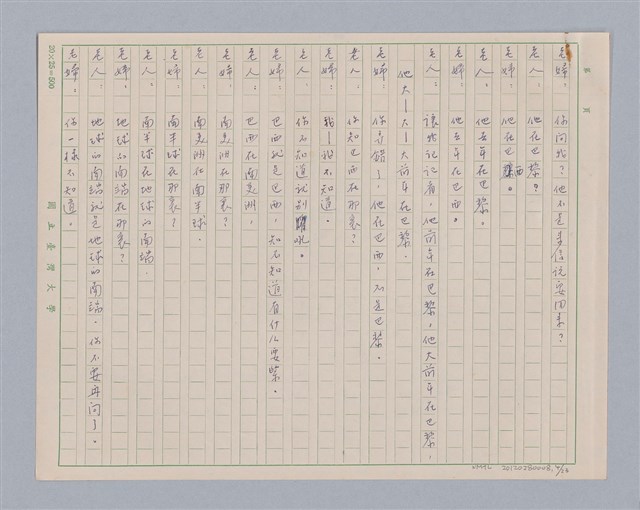 第 頁
老婦：你問我？他不是來信說要回來？
老人：他在巴黎？
老婦：他在巴西。
老人：他去年在巴黎。
老婦：他去年在巴西。
老人：讓我記記看，他前年在巴黎，他大前年在巴黎，
他大－大－大前年在巴黎。
老婦：你弄錯了，他在巴西，不是巴黎。
老人：你知巴西在那裏？
老婦：我－我不知道。
老人：你不知道就別
老婦：巴西就是巴西，知不知道有什么要緊。
老人：巴西在南美洲，
老婦：南美洲在那裏？
老人：南美洲在南半球，
老婦：南半球在那裏？
老人：南半球在地球的南端，
老婦：地球的南端在那裏？
老人：地球的南端就是地球的南端，你不要再問了。
老婦：你一樣不知道。
20×25=500
國立臺灣大學
NMTL 20120280008, 4/26